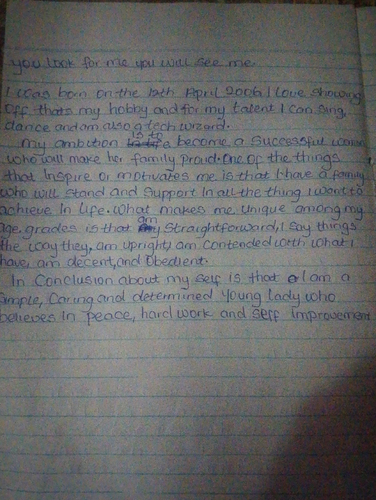 you look for me you will see me.
I was born on the 12th April 2006. I love showing
off thats my hobby and for my talent I can sing,
dance and am also a tech wizard.
My ambition is to become a successful woman
who will make her family proud. One of the things
that inspire or motivates me is that I have a family
who will stand and support in all the thing I want to
achieve in life. What makes me unique among my
age grades is that am straightforward, I say things
the way they, am upright, am contended with what I
have, am decent, and obedient.
In conclusion about my self is that I am a
simple, caring and determined young lady who
believes in peace, hard work and self improvement